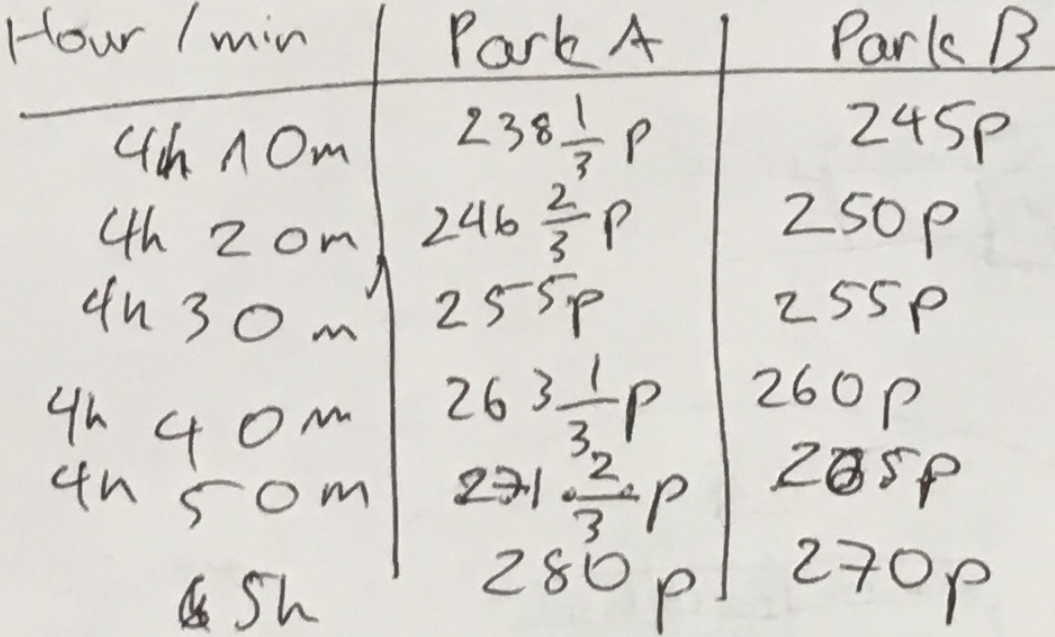 Hour / min Park A Park B
4h 10m 238 1/3 p 245p
4h 20m 246 2/3 p 250p
4h 30m 255p 255p
4h 40m 263 1/3 p 260p
4h 50m 271 2/3 p 265p
5h 280p 270p